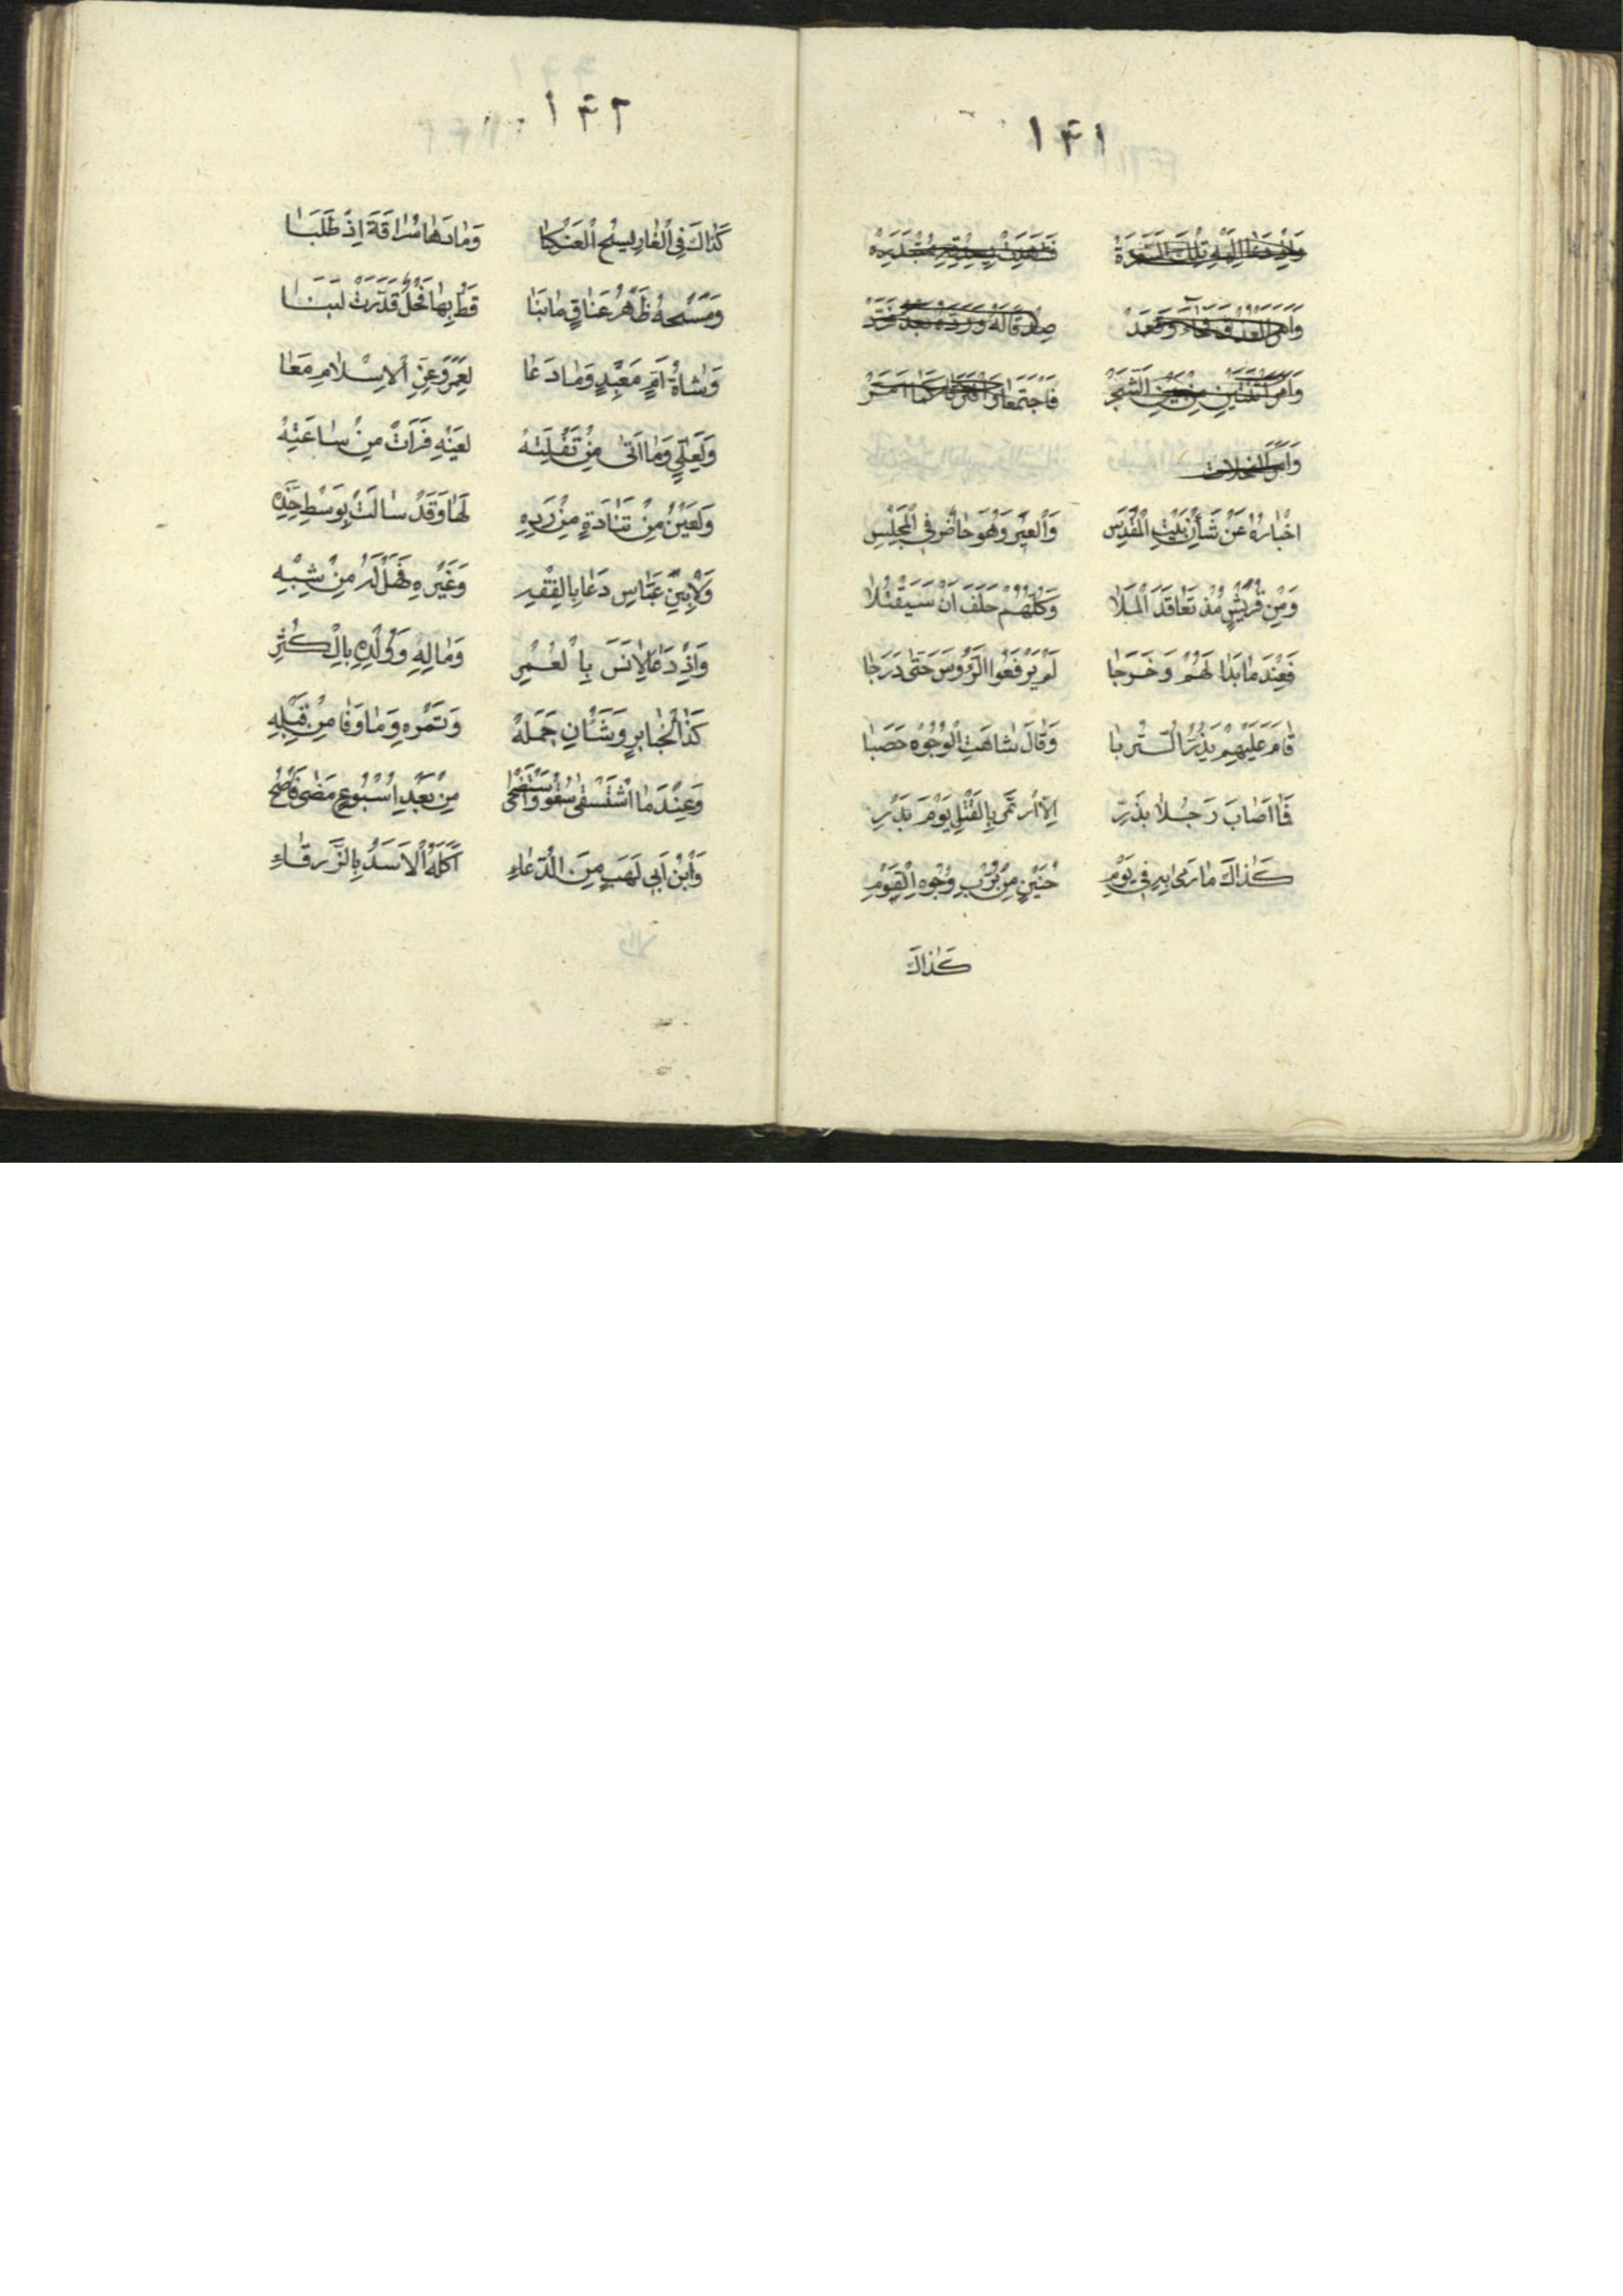 ١٤١
وَإِذْ دَعَا إِلَيْهِ تِلْكَ الشَّجَرَةْ
وَأَمْرُ الْعِذْقِ فَجَاءَ وَقَعَدْ صِدْقًا لَهُ وَرَدَّهُ بَعْدُ فَرَدْ
وَأَمْرُ ثِنْتَيْنِ مِنَ الشَّجَرْ فَاجْتَمَعَا وَافْتَرَقَا كَمَا أَمَرْ
وَأَمْرُ النَّخَلَاتِ
اخْبَارُهُ عَنْ شَأْنِ بَيْتِ الْمَقْدِسِ وَالْعِيْرِ وَهُوَ حَاضِرٌ فِي الْمَجْلِسِ
وَمِنْ قُرَيْشٍ مُذْ تَعَاقَدَ الْمَلَا وَكُلُّهُمْ حَلَفَ اَنْ سَيَقْتُلَا
فَعِنْدَمَا بَدَا لَهُمْ وَخَرَجَا لَمْ يَرْفَعُوا الرُّؤُوسَ حَتَى دَرَجَا
قَامَ عَلَيْهِمْ يَذُرُّ التُّرْبَا وَقَالَ شَاهَتِ الْوُجُوْهِ حَصَبَا
فَمَا اَصَابَ رَجُلًا بِذَرِّ اِلَّا رُمَى بِالْقَتْلِ يَوْمَ بَدْرِ
كَذَاكَ مَا رَمَى بِهِ فِي يَوْمِ حُنَيْنٍ مِنْ تُرْبٍ وُجُوْهَ الْقَوْمِ
كَذَاكَ
١٤٢
كَذَاكَ فِي الْغَارِ بِنَسْجِ الْعَنْكَبَا وَمَا دَهَا سُرَاقَةَ اِذْ طَلَبَا
وَمَسْحُهُ ظَهْرَ عَنَاقٍ مَا نَبَا قَطُّ بِهَا فَحْلٌ فَدَرَّتْ لَبَنَا
وَشَاةُ اُمِّ مَعْبَدٍ وَمَا دَعَا لِعُمَرَ وَعِزِّ الْاِسْلَامِ مَعَا
وَلِعَلِيٍّ وَمَا اَتَى مِنْ تَفْلَتِهْ لِعَيْنِهِ فَرَأَتْ مِنْ سَاعَتِهْ
وَلِعَيْنٍ مِنْ قَتَادَةٍ مِنْ رَدِّهِ لَهَا وَقَدْ سَالَتْ بِوَسْطِ خَدِّهِ
وَلِابْنِ عَبَّاسٍ دَعَا بِالْفِقْهِ وَغَيْرِهِ فَهَلْ لَهُ مِنْ شِبْهِ
وَاِذْ دَعَا لِاَنَسَ بِالْعُمْرِ وَمَالِهِ وَوُلْدِهِ بِالْكُثْرِ
كَذَا لِجَابِرٍ وَشَأْنِ جَمَلِهْ وَتَمْرِهِ وَمَا وَفَا مِنْ قِبَلِهِ
وَعِنْدَمَا اسْتَسْقَى سُقُوا وَاسْتَضْحَى مِنْ بَعْدِ اُسْبُوعٍ مَضَى فَاَضْحَى
وَابْنُ اَبِي لَهَبٍ مِنَ الدُّعَاءِ اَكَلَهُ الْاَسَدُ بِالزَّرْقَاءِ